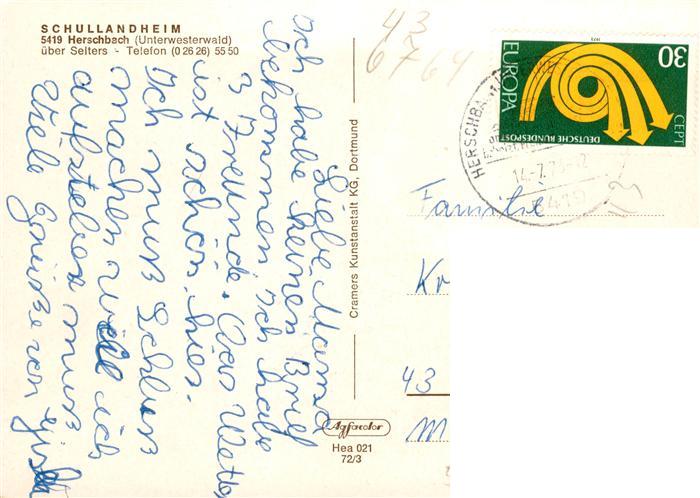 SCHULLANDHEIM
5419 Herschbach (Unterwesterwald)
über Selters - Telefon (0 26 26) 55 50
Liebe Mama
Ich habe keinen Brief
bekommen ich habe
3 Freunde. Das Wetter
ist schön hier.
Ich muß Schluß
machen weil ich
aufstehen muß
Viele Grüße von
Cramers Kunstanstalt KG, Dortmund
Agfacolor
Hea 021
72/3
43
67 64
EUROPA
30
1973
DEUTSCHE BUNDESPOST
CEPT
HERSCHBA
14.-7.73-12
5419
Familie
Kr
43
M